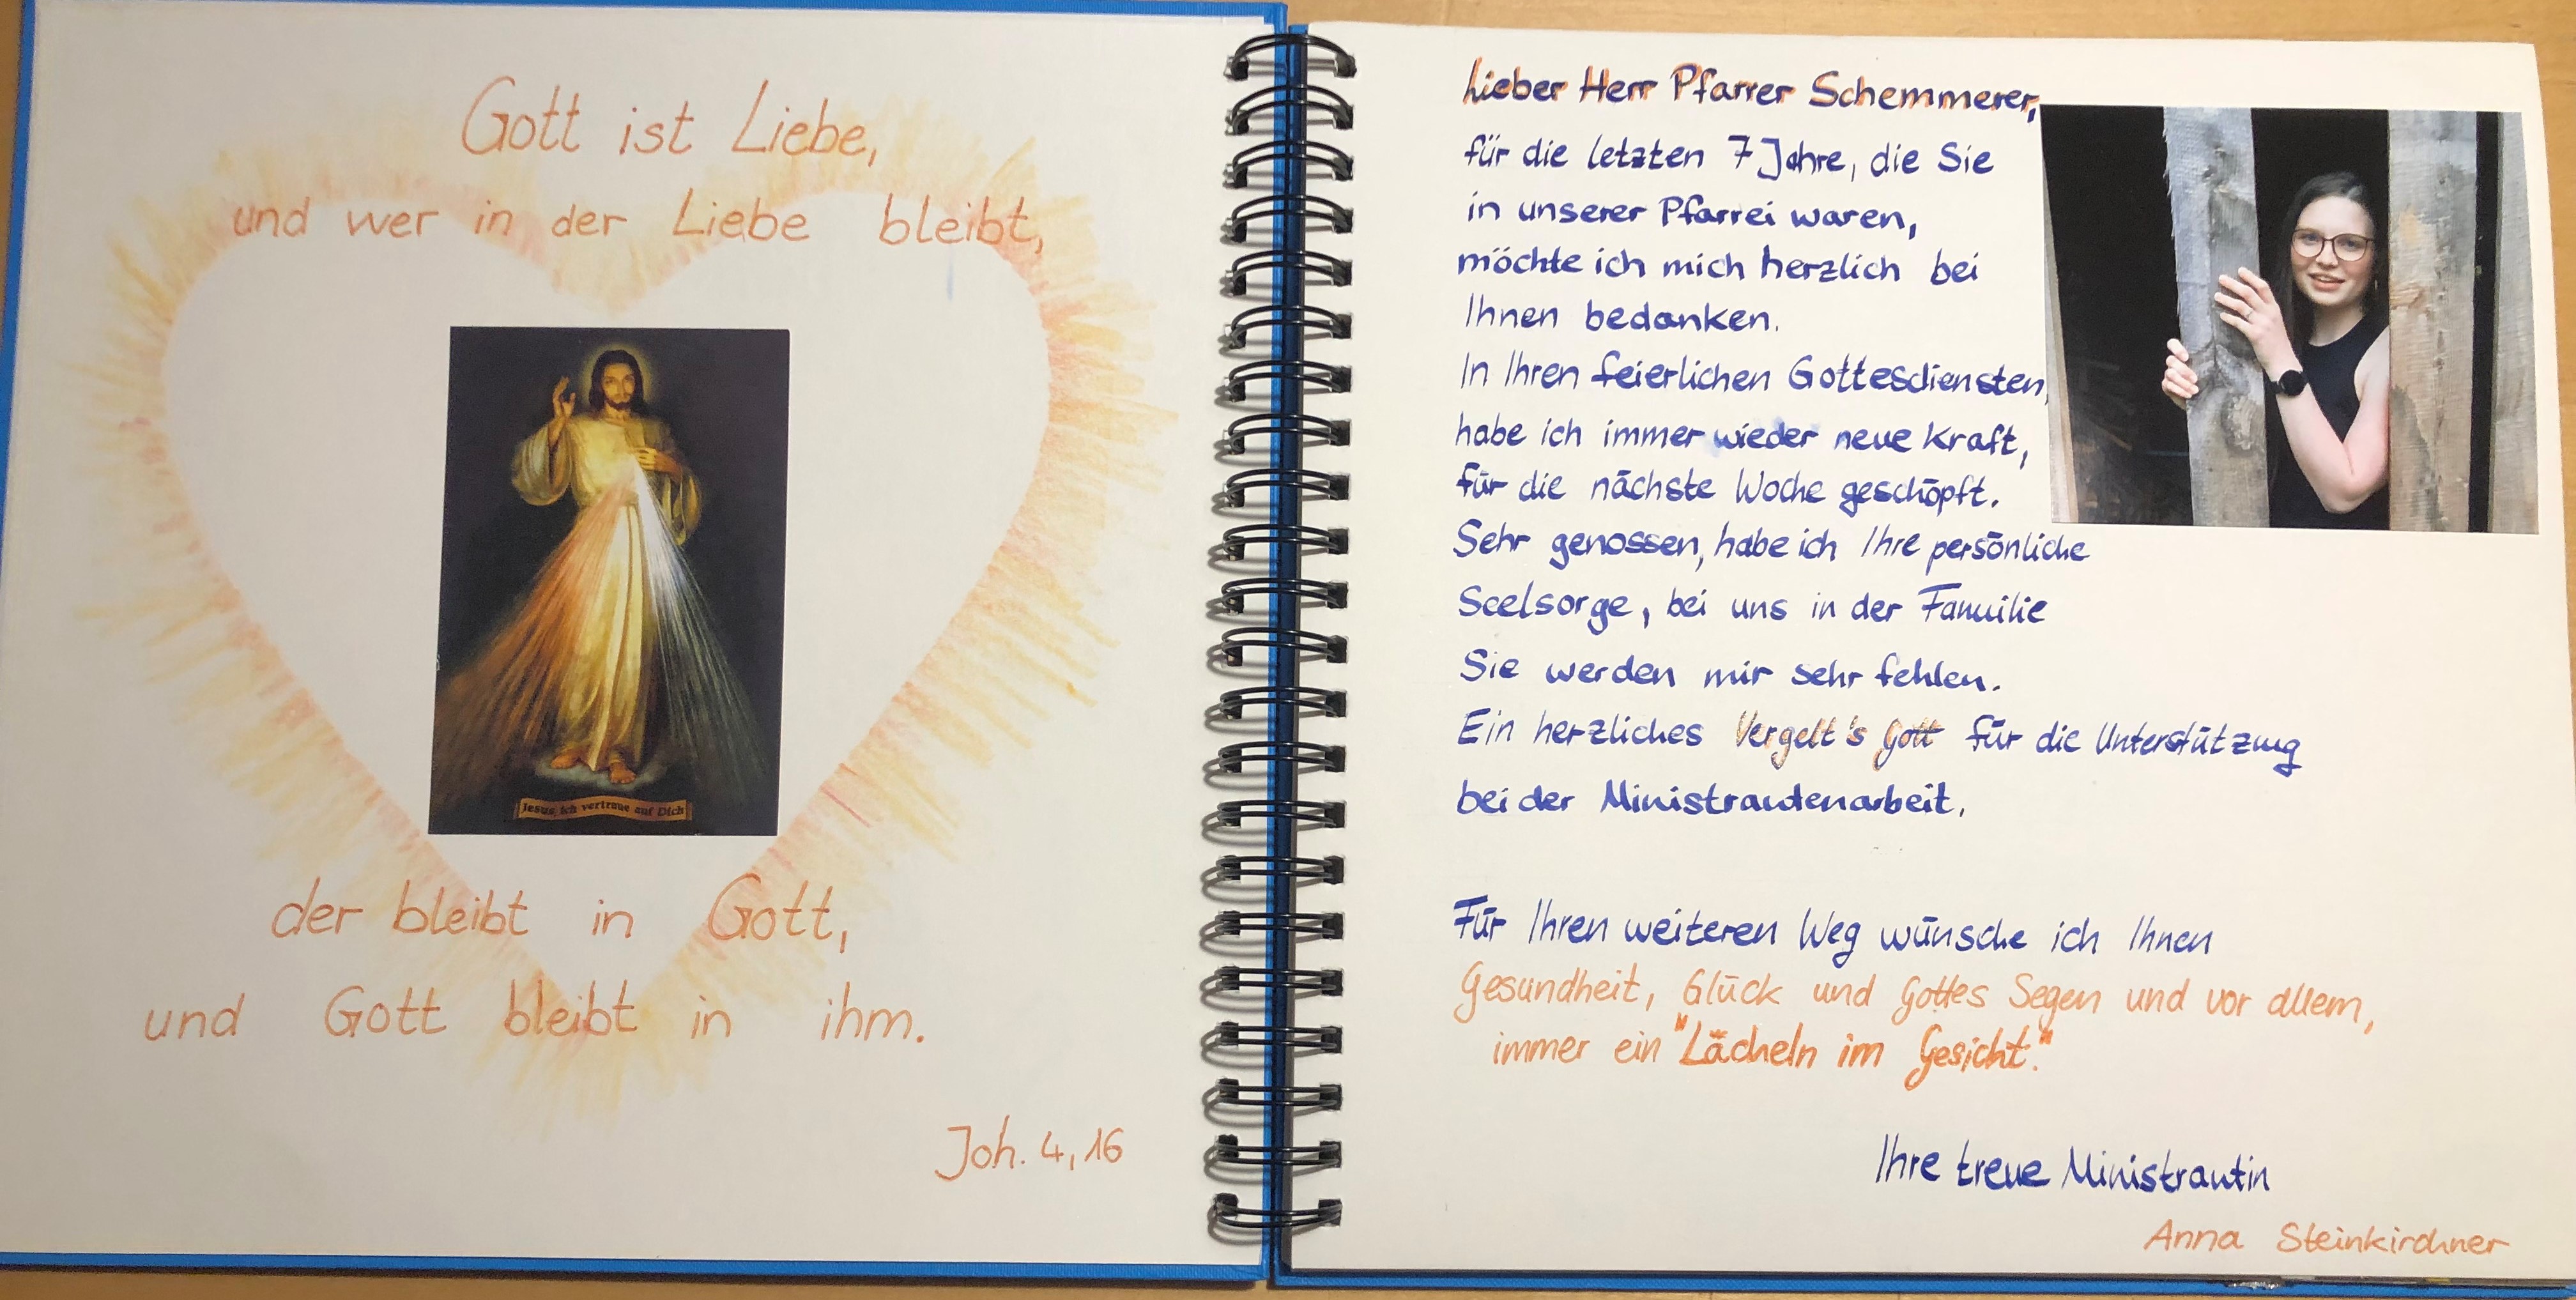 Gott ist Liebe,
und wer in der Liebe bleibt,
Jesus, ich vertraue auf Dich
der bleibt in Gott,
und Gott bleibt in ihm.
Joh. 4, 16
Lieber Herr Pfarrer Schemmerer,
für die letzten 7 Jahre, die Sie
in unserer Pfarrei waren,
möchte ich mich herzlich bei
Ihnen bedanken.
In Ihren feierlichen Gottesdiensten,
habe ich immer wieder neue Kraft,
für die nächste Woche geschöpft.
Sehr genossen, habe ich Ihre persönliche
Seelsorge, bei uns in der Familie
Sie werden mir sehr fehlen.
Ein herzliches Vergelt's Gott für die Unterstützung
bei der Ministrantenarbeit.
Für Ihren weiteren Weg wünsche ich Ihnen
Gesundheit, Glück und Gottes Segen und vor allem,
immer ein "Lächeln im Gesicht."
Ihre treue Ministrantin
Anna Steinkirchner